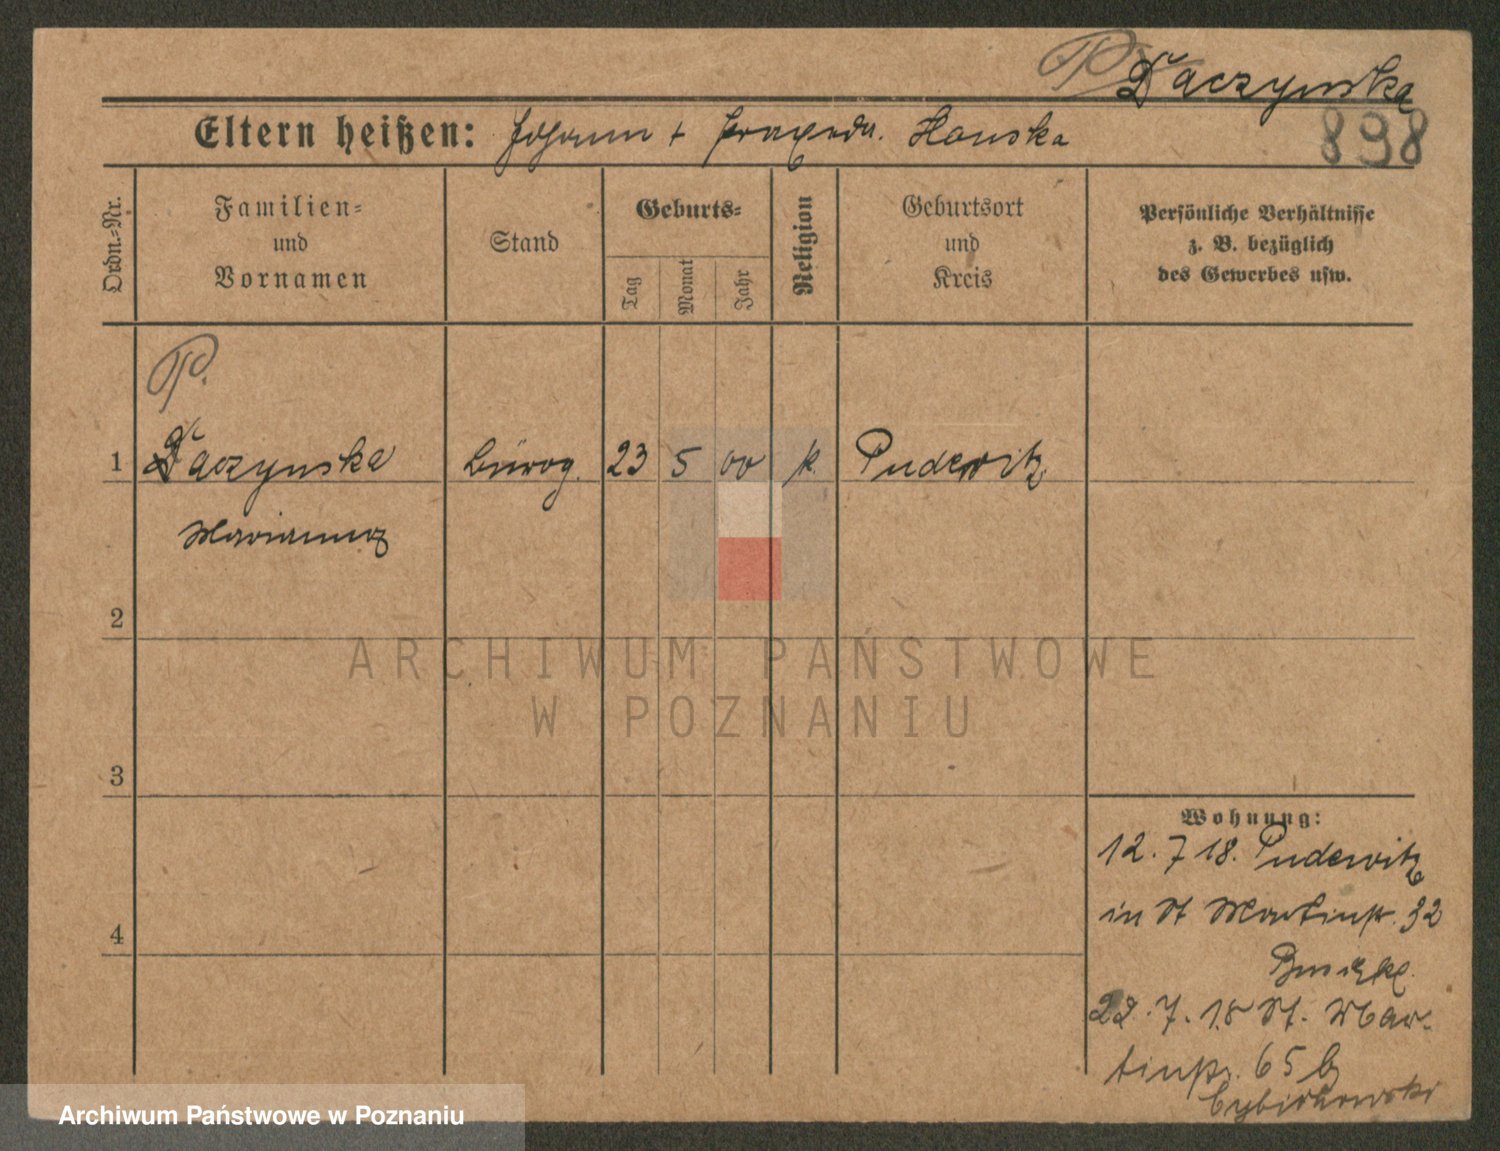 P. Daczynska
898
Eltern heißen: Johann + Praxeda. Hanska
Ordn.-Nr.
Familien-
und
Vornamen
Stand
Geburts-
Tag
Monat
Jahr
Religion
Geburtsort
und
Kreis
Persönliche Verhältnisse
z. B. bezüglich
des Gewerbes usw.
P.
1 Daczynska bürog. 23 5 00 k. Pudewitz
Marianna
2
3
4
Wohnung:
12. 7 18. Pudewitz
in St Martinstr. 32
22. 7. 18 St. Mar-
tinstr. 65 b
Cybichowski
ARCHIWUM PAŃSTWOWE
W POZNANIU
Archiwum Państwowe w Poznaniu